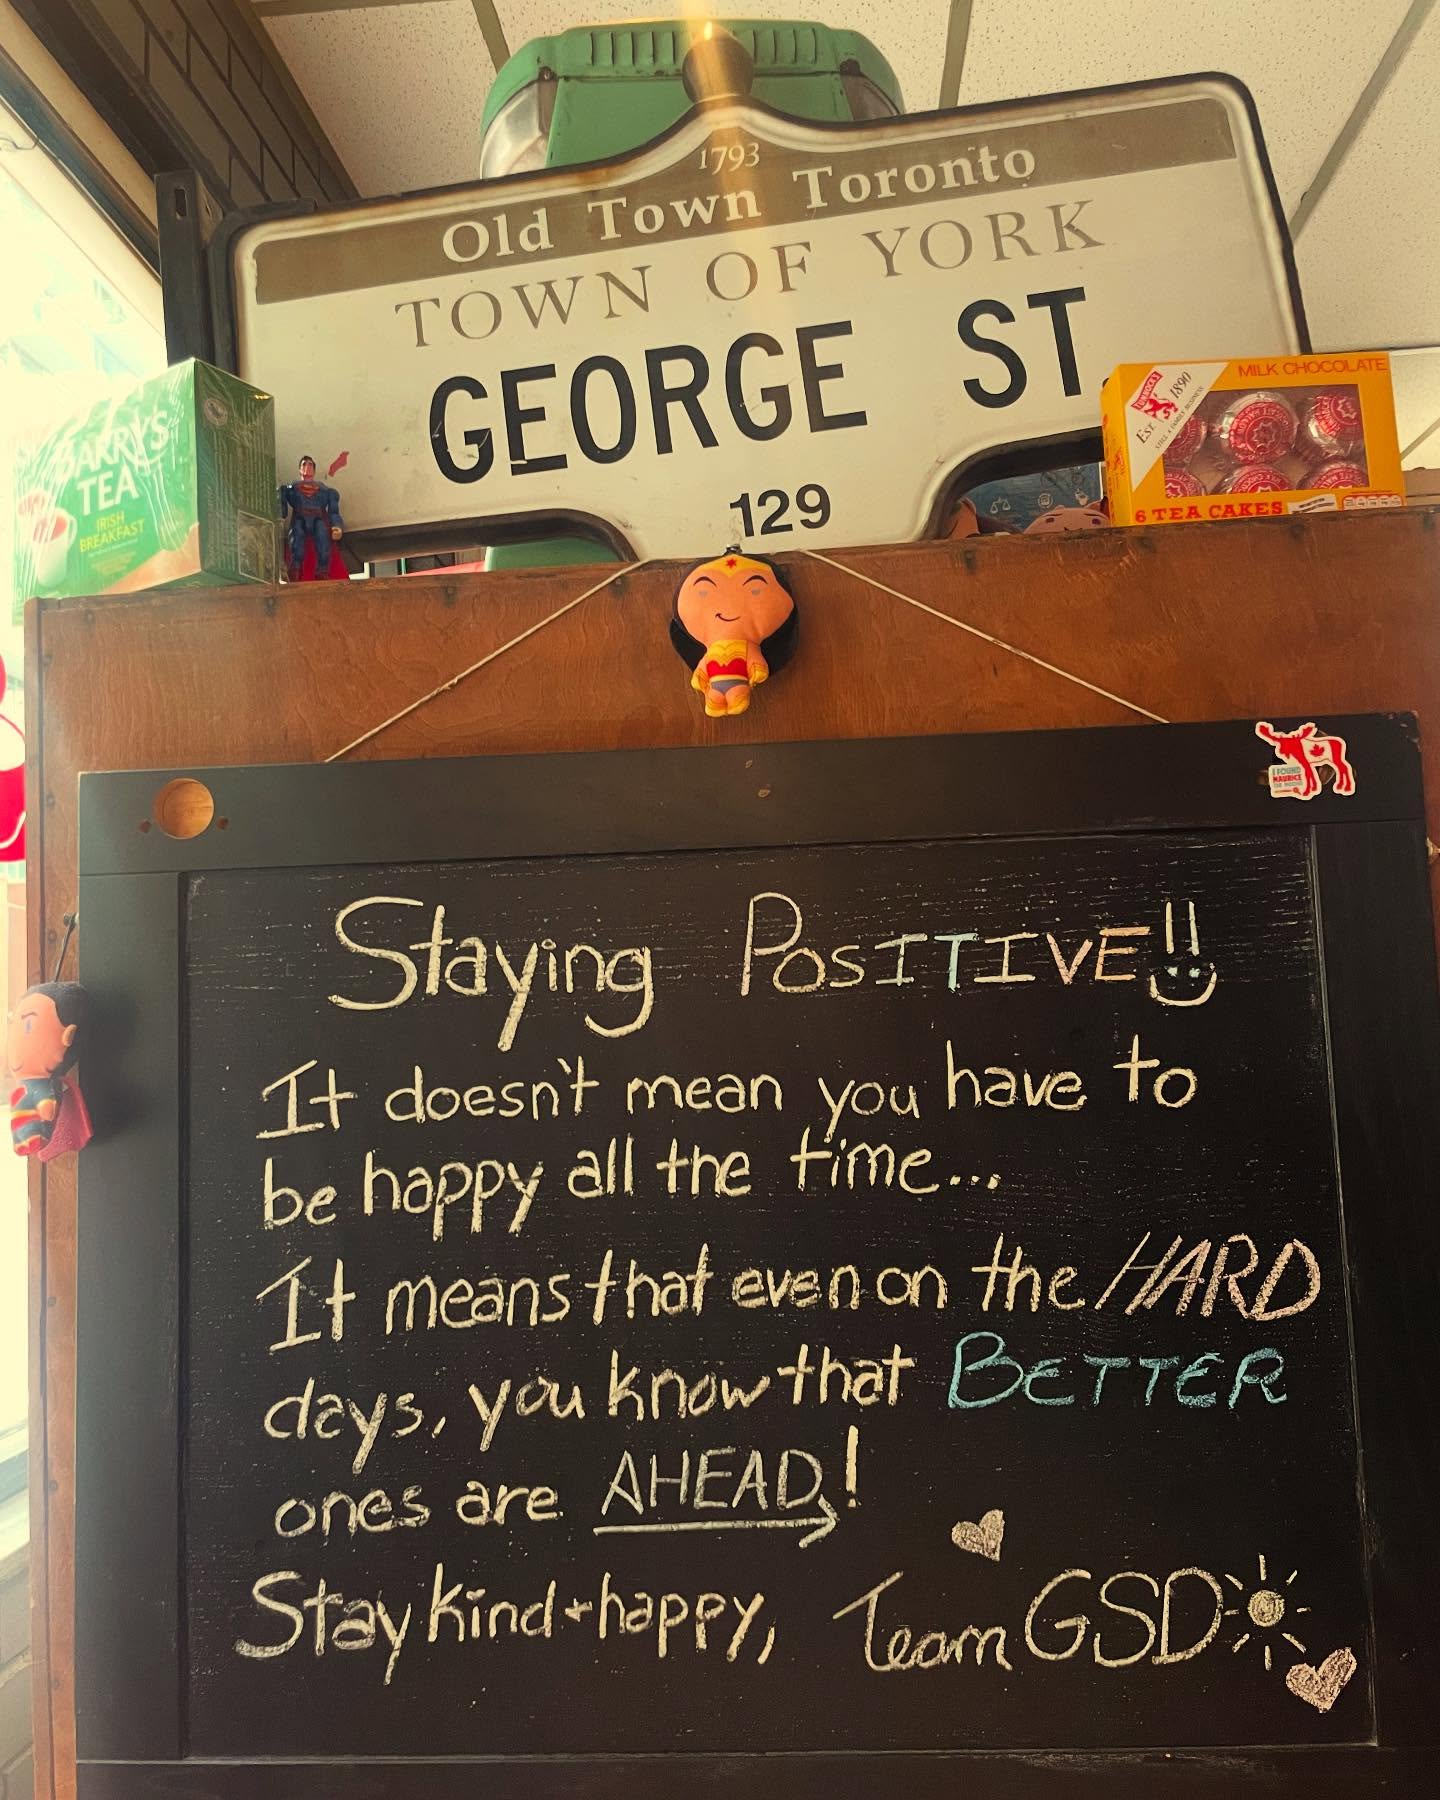 1793
Old Town Toronto
TOWN OF YORK
GEORGE ST.
129
BARRYS
TEA
IRISH
BREAKFAST
MILK CHOCOLATE
TUNNOCK'S
EST. 1890
STILL A FAMILY BUSINESS
6 TEA CAKES
I FOUND
MAURICE
THE MOOSE
Staying POSITIVE!!
It doesn't mean you have to
be happy all the time...
It means that even on the HARD
days, you know that BETTER
ones are AHEAD!
Stay kind + happy, Team GSD